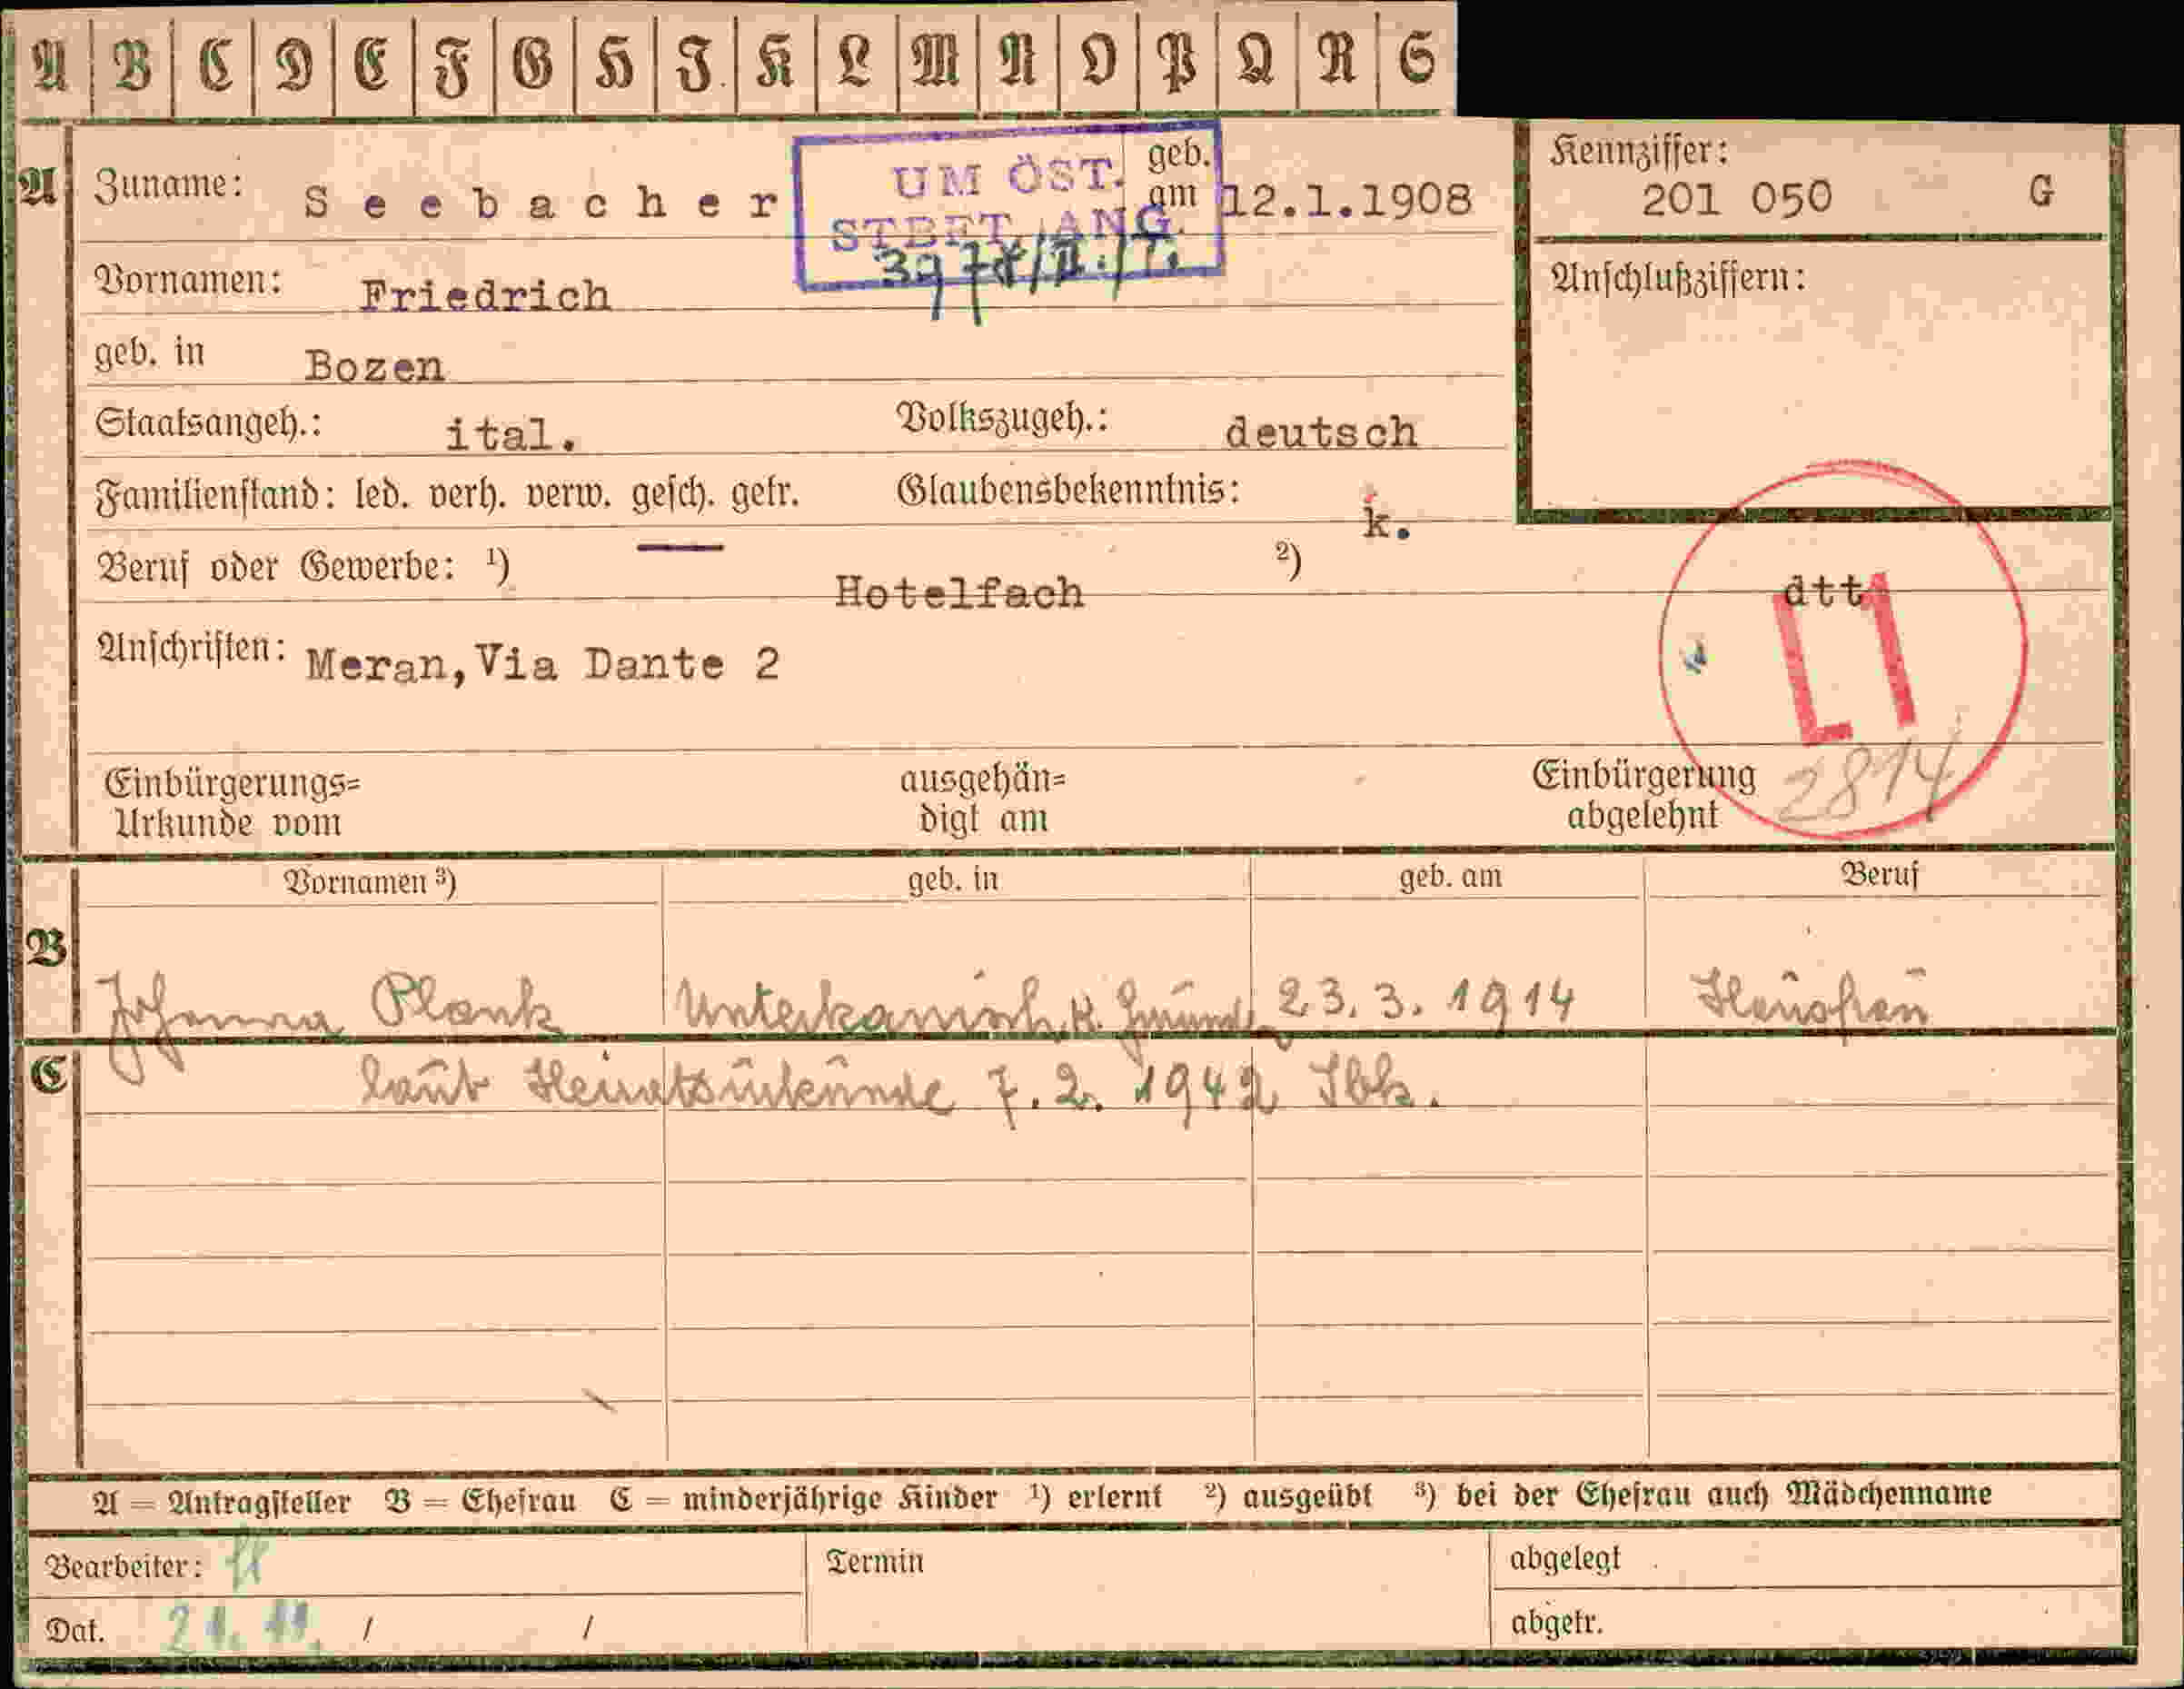 A B C D E F G H I K L M N O P Q R S
A Zuname: Seebacher geb. am 12.1.1908
UM ÖST.
STBFT. ANG.
Kennziffer:
201 050 G
Vornamen: Friedrich
Anschlußziffern:
geb. in Bozen
Staatsangeh.: ital. Volkszugeh.: deutsch
Familienstand: led. verh. verw. gesch. getr. Glaubensbekenntnis: k.
Beruf oder Gewerbe: 1) Hotelfach 2) dtt
Anschriften: Meran, Via Dante 2
L1
2814
Einbürgerungs=
Urkunde vom
ausgehän=
digt am
Einbürgerung
abgelehnt
Vornamen 3) geb. in geb. am Beruf
B Johanna Plank 23.3.1914 Hausfrau
C laut Heiratsurkunde 7.2.1942 Ibk.
A = Antragsteller B = Ehefrau C = minderjährige Kinder 1) erlernt 2) ausgeübt 3) bei der Ehefrau auch Mädchenname
Bearbeiter: Termin abgelegt
Dat. / / abgetr.